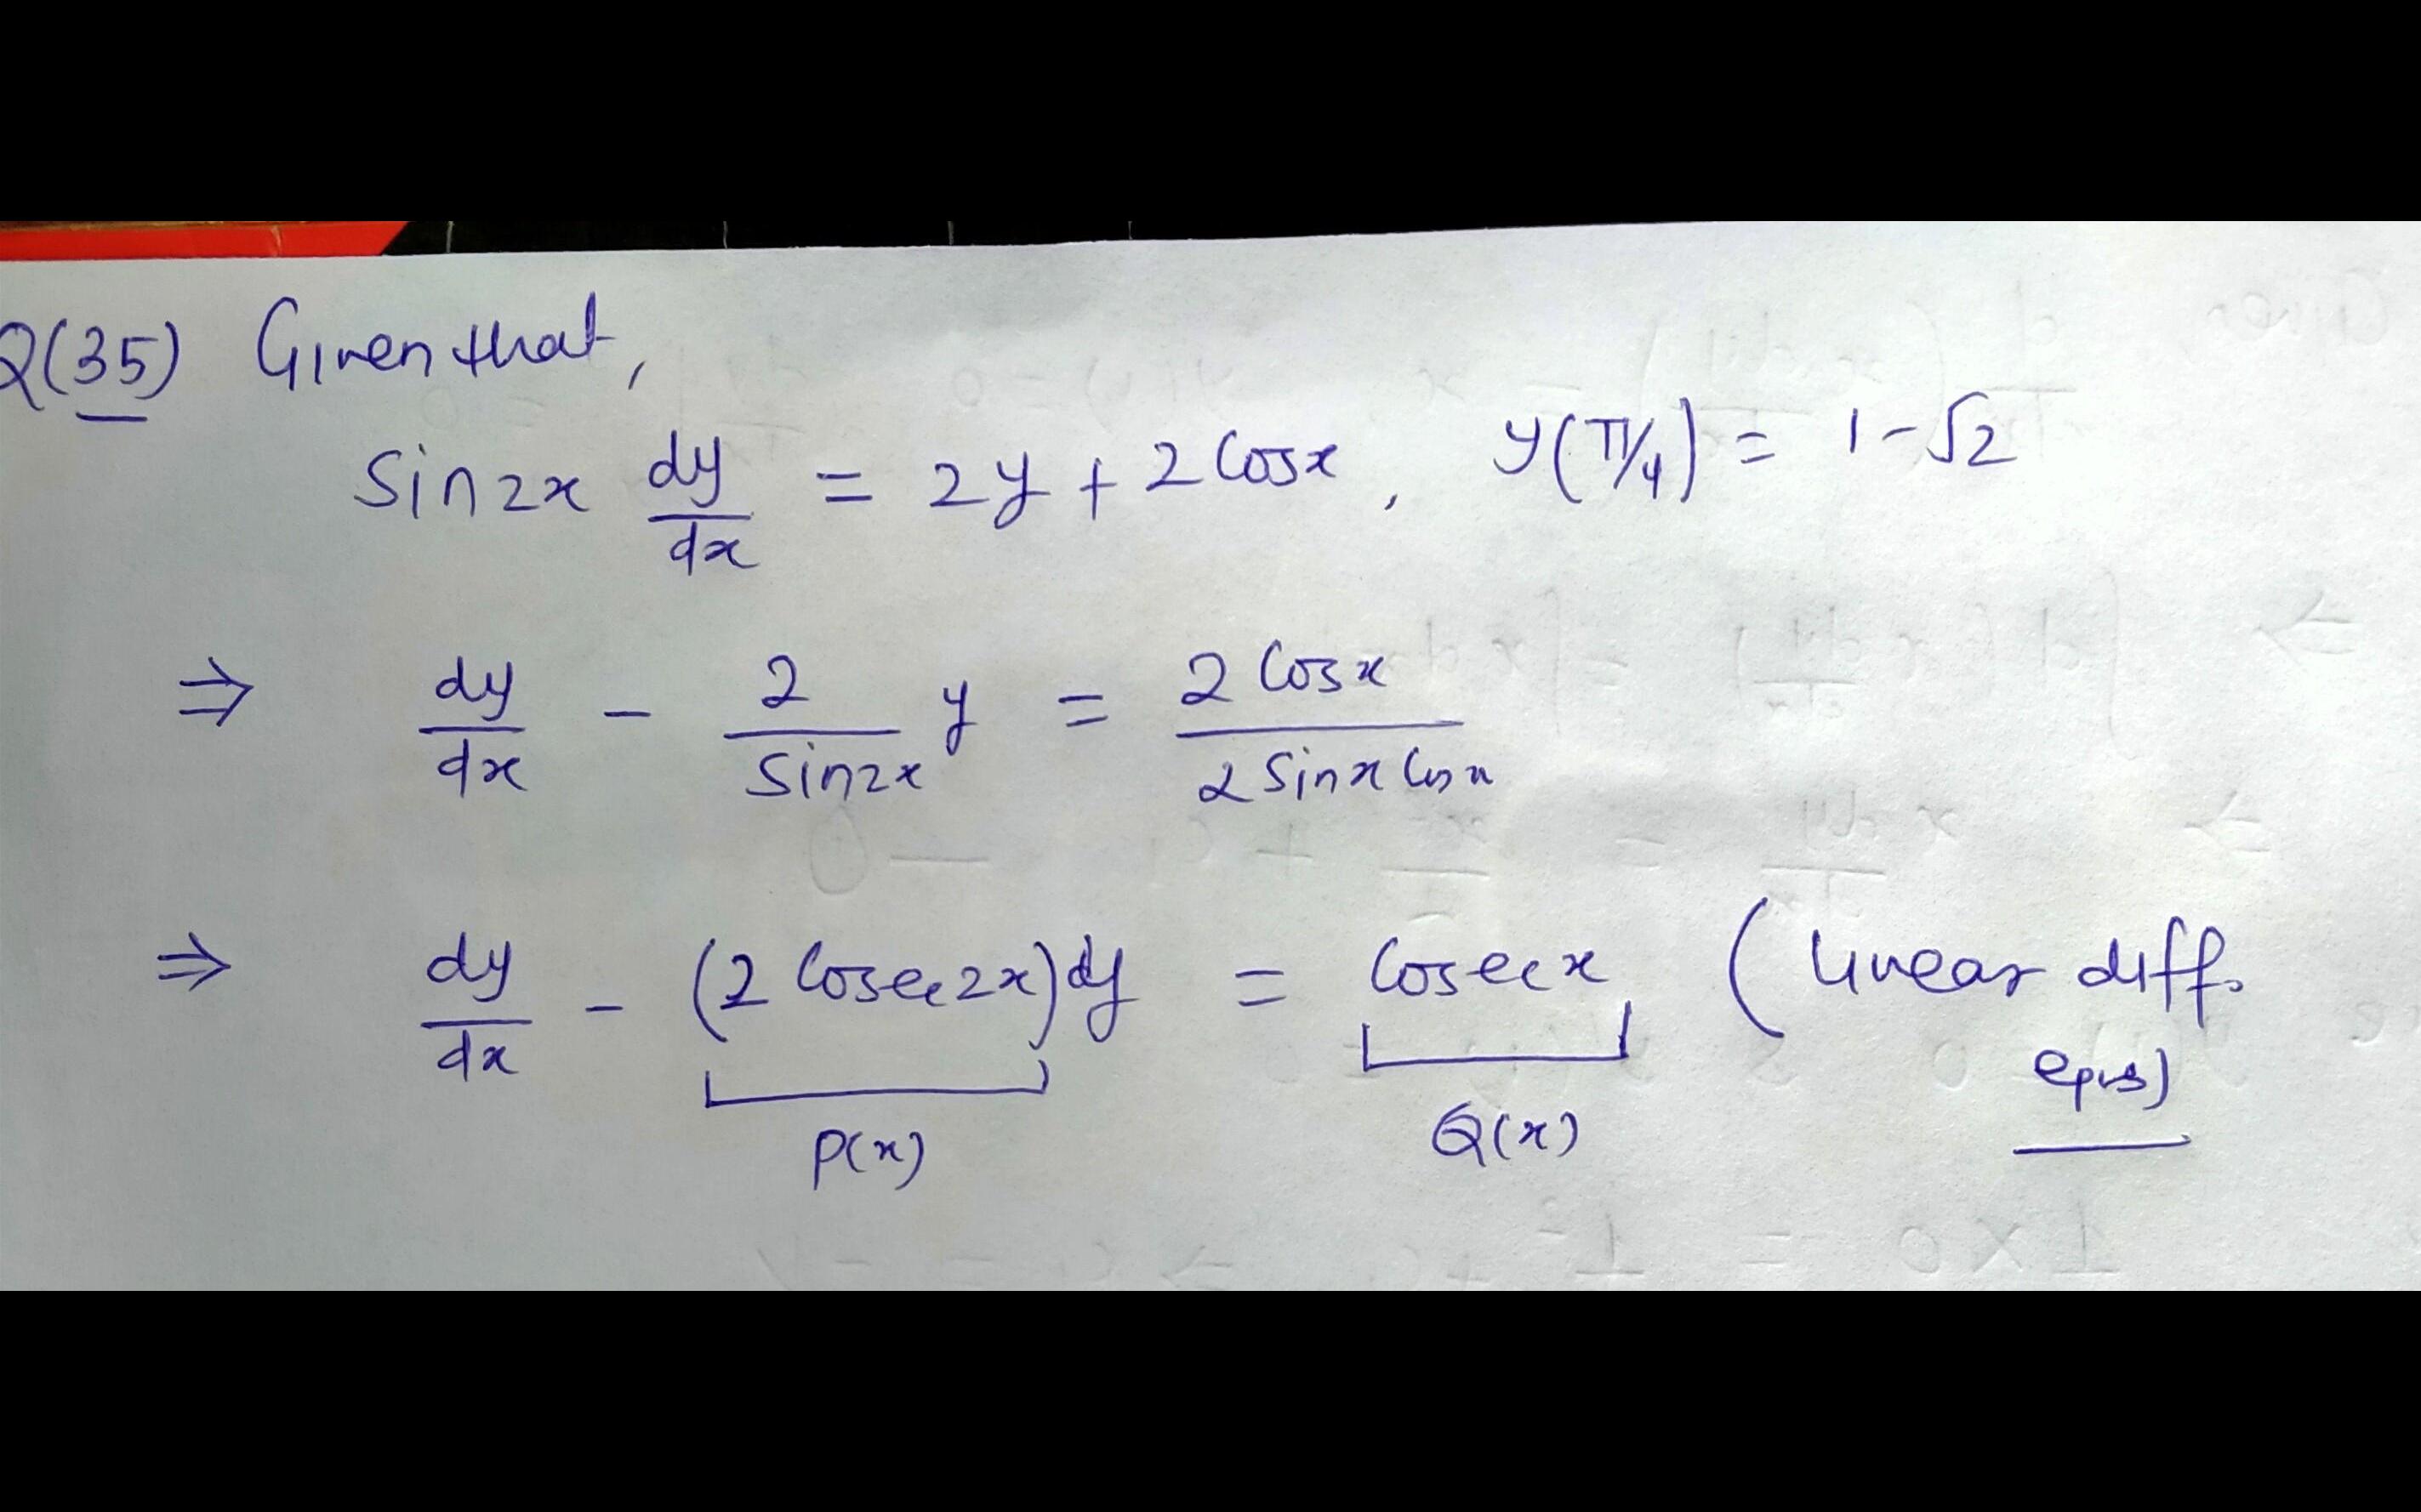 Q(35) Given that,
Sin2x dy/dx = 2y + 2Cosx, y(π/4) = 1-√2
⇒ dy/dx - 2/Sin2x y = 2Cosx/2SinxCosx
⇒ dy/dx - (2Cosec2x)dy = Cosecx (linear diff.
eqns)
P(x) Q(x)